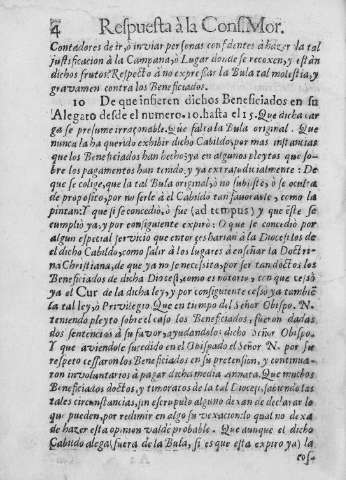 4 Respuesta à la Cons. Mor.
Contadores de ir, ò inviar personas confidentes à hazer la tal
justificacion à la Campana, o Lugar donde se recoxen, y están
dichos frutos? Respecto à no expressar la Bula tal molestia, y
gravamen contra los Beneficiados.
10 De que infieren dichos Beneficiados en su
Alegato desde el numero. 10. hasta el 15. Que dicha car
ga se presume irraçonable. Que falta la Bula original. Que
nunca la ha querido exhibir dicho Cabildo, por mas instancias
que los Beneficiados han hecho ya en algunos pleytos que so-
bre los pagamentos han tenido, y ya extrajudicialmente: De
que se colige, que la tal Bula original, ò no subsiste, ò se oculta
de proposito, por no serle à el Cabildo tan favorable, como la
pintan: Y que si se concediò, ò fue (ad tempus) y que este se
cumpliò ya, y por consiguiente expirò: O que se concediò por
algun especial servicio que entonces harian à la Diocesi los de
el dicho Cabildo, como salir à los lugares à enseñar la Doctri-
na Christiana, de que ya no se necessita, por ser tan doctos los
Beneficiados de dicha Diocesi, como es notorio, con que cessò
ya el Cur de la dicha ley, y por consiguente cessò ya tambiẽ
la tal ley, ò Privilegio. Que en tiempo del Señor Obispo. N.
teniendo pleyto sobre el caso los Beneficiados, fueron dadas
dos sentencias à su favor, ayudandolos dicho Señor Obispo.
Y que aviendole sucedido en el Obispado el Señor N. por su
respeto cessaron los Beneficiados en su pretension, y continua-
ron involuntarios à pagar dicha media annata. Que muchos
Beneficiados doctos, y timoratos de la tal Diocesi, sabiendo las
tales circunstancias, sin escrupulo alguno dexan de declarar lo
que pueden, por redimir en algo su vexacion: lo qual no dexa
de hazer esta opinion valde probable. Que aunque el dicho
Cabildo alega (fuera de la Bula, si es que esta expiro ya) la
cos-